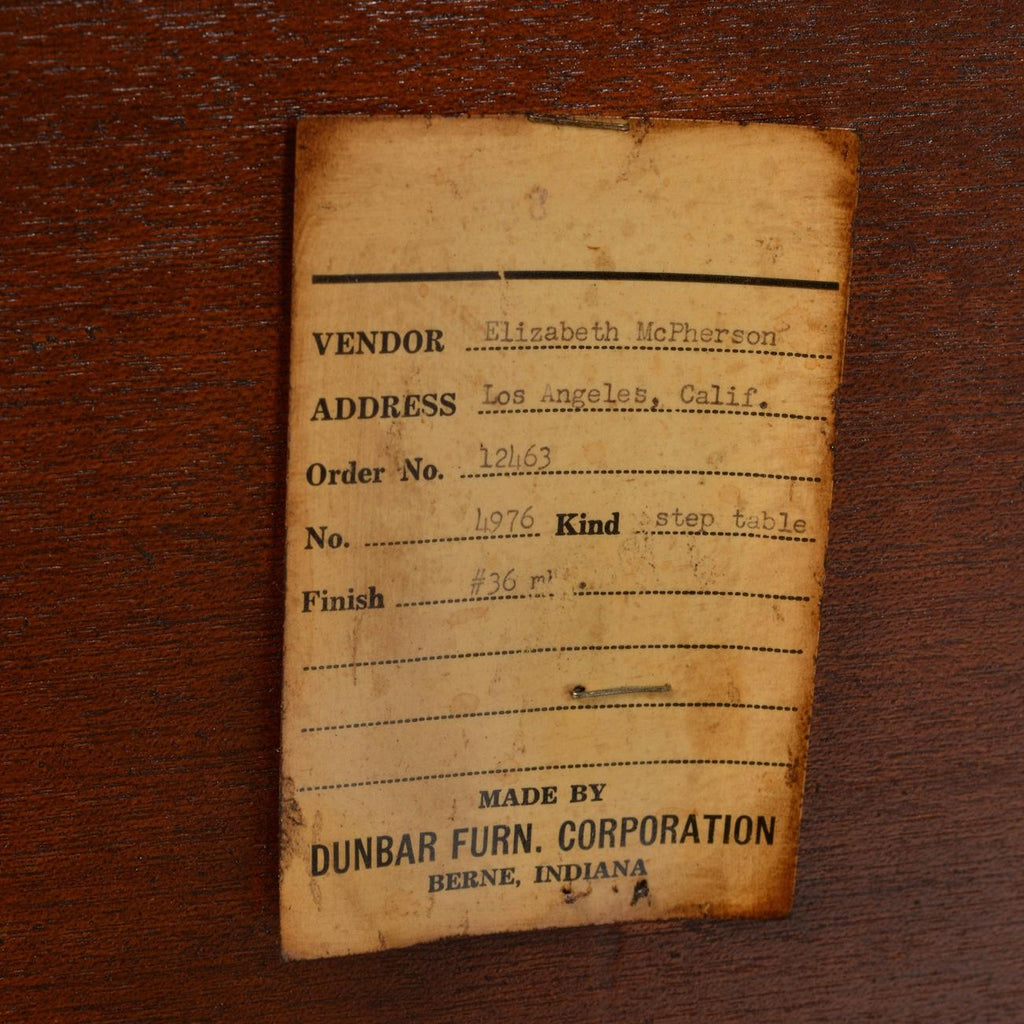 VENDOR Elizabeth McPherson
ADDRESS Los Angeles, Calif.
Order No. 12463
No. 4976 Kind step table
Finish #36
MADE BY
DUNBAR FURN. CORPORATION
BERNE, INDIANA